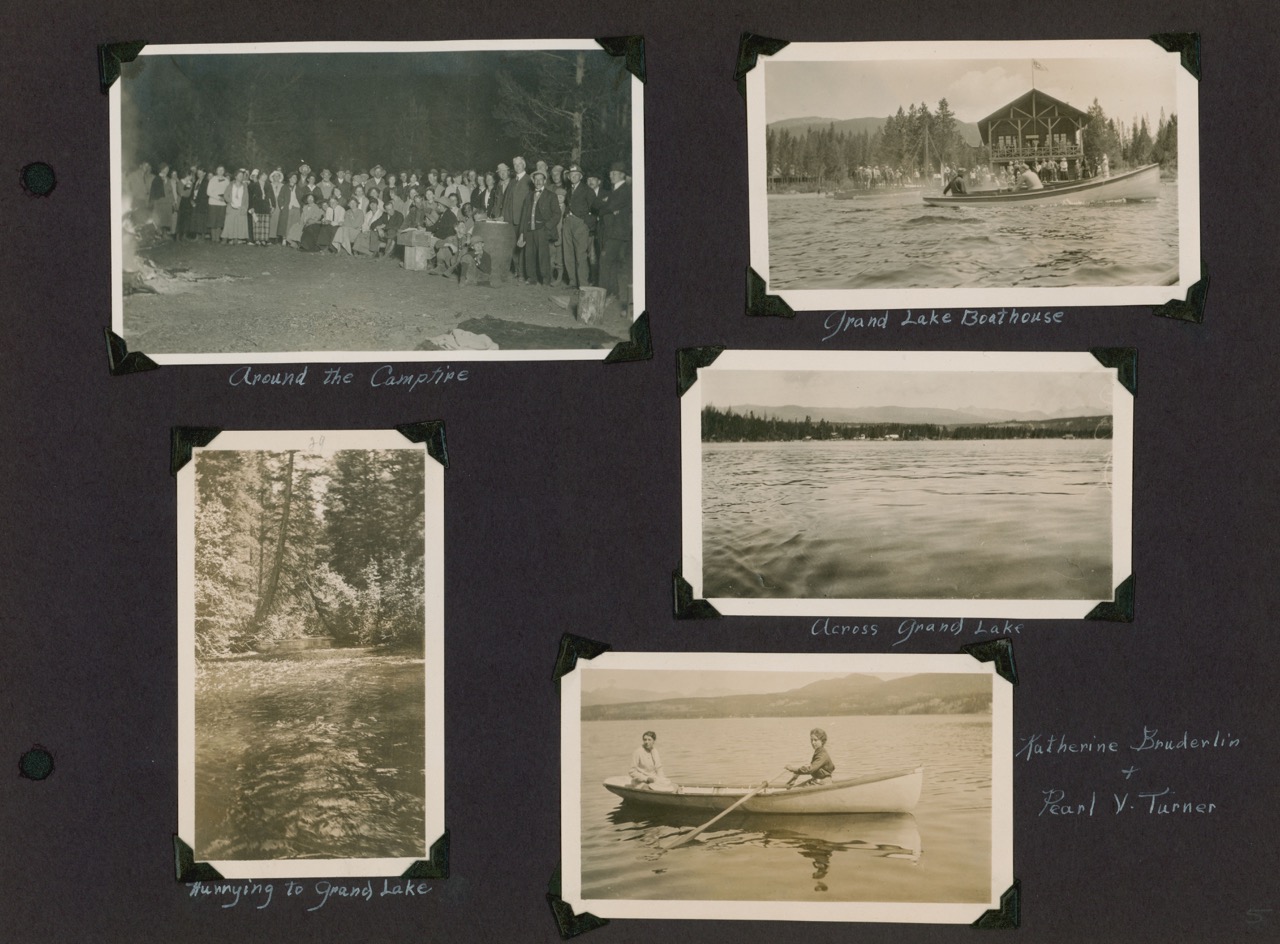 Around the Campfire
Grand Lake Boathouse
Across Grand Lake
Hurrying to Grand Lake
Katherine Bruderlin
+
Pearl V. Turner
5